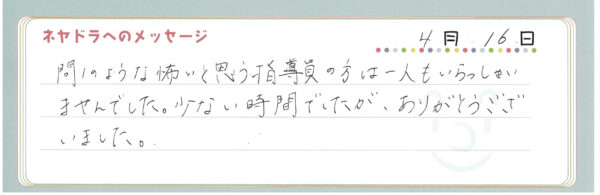 ネヤドラへのメッセージ
4月 16日
問1のような怖いと思う指導員の方は一人もいらっしゃい
ませんでした。少ない時間でしたが、ありがとうござ
いました。